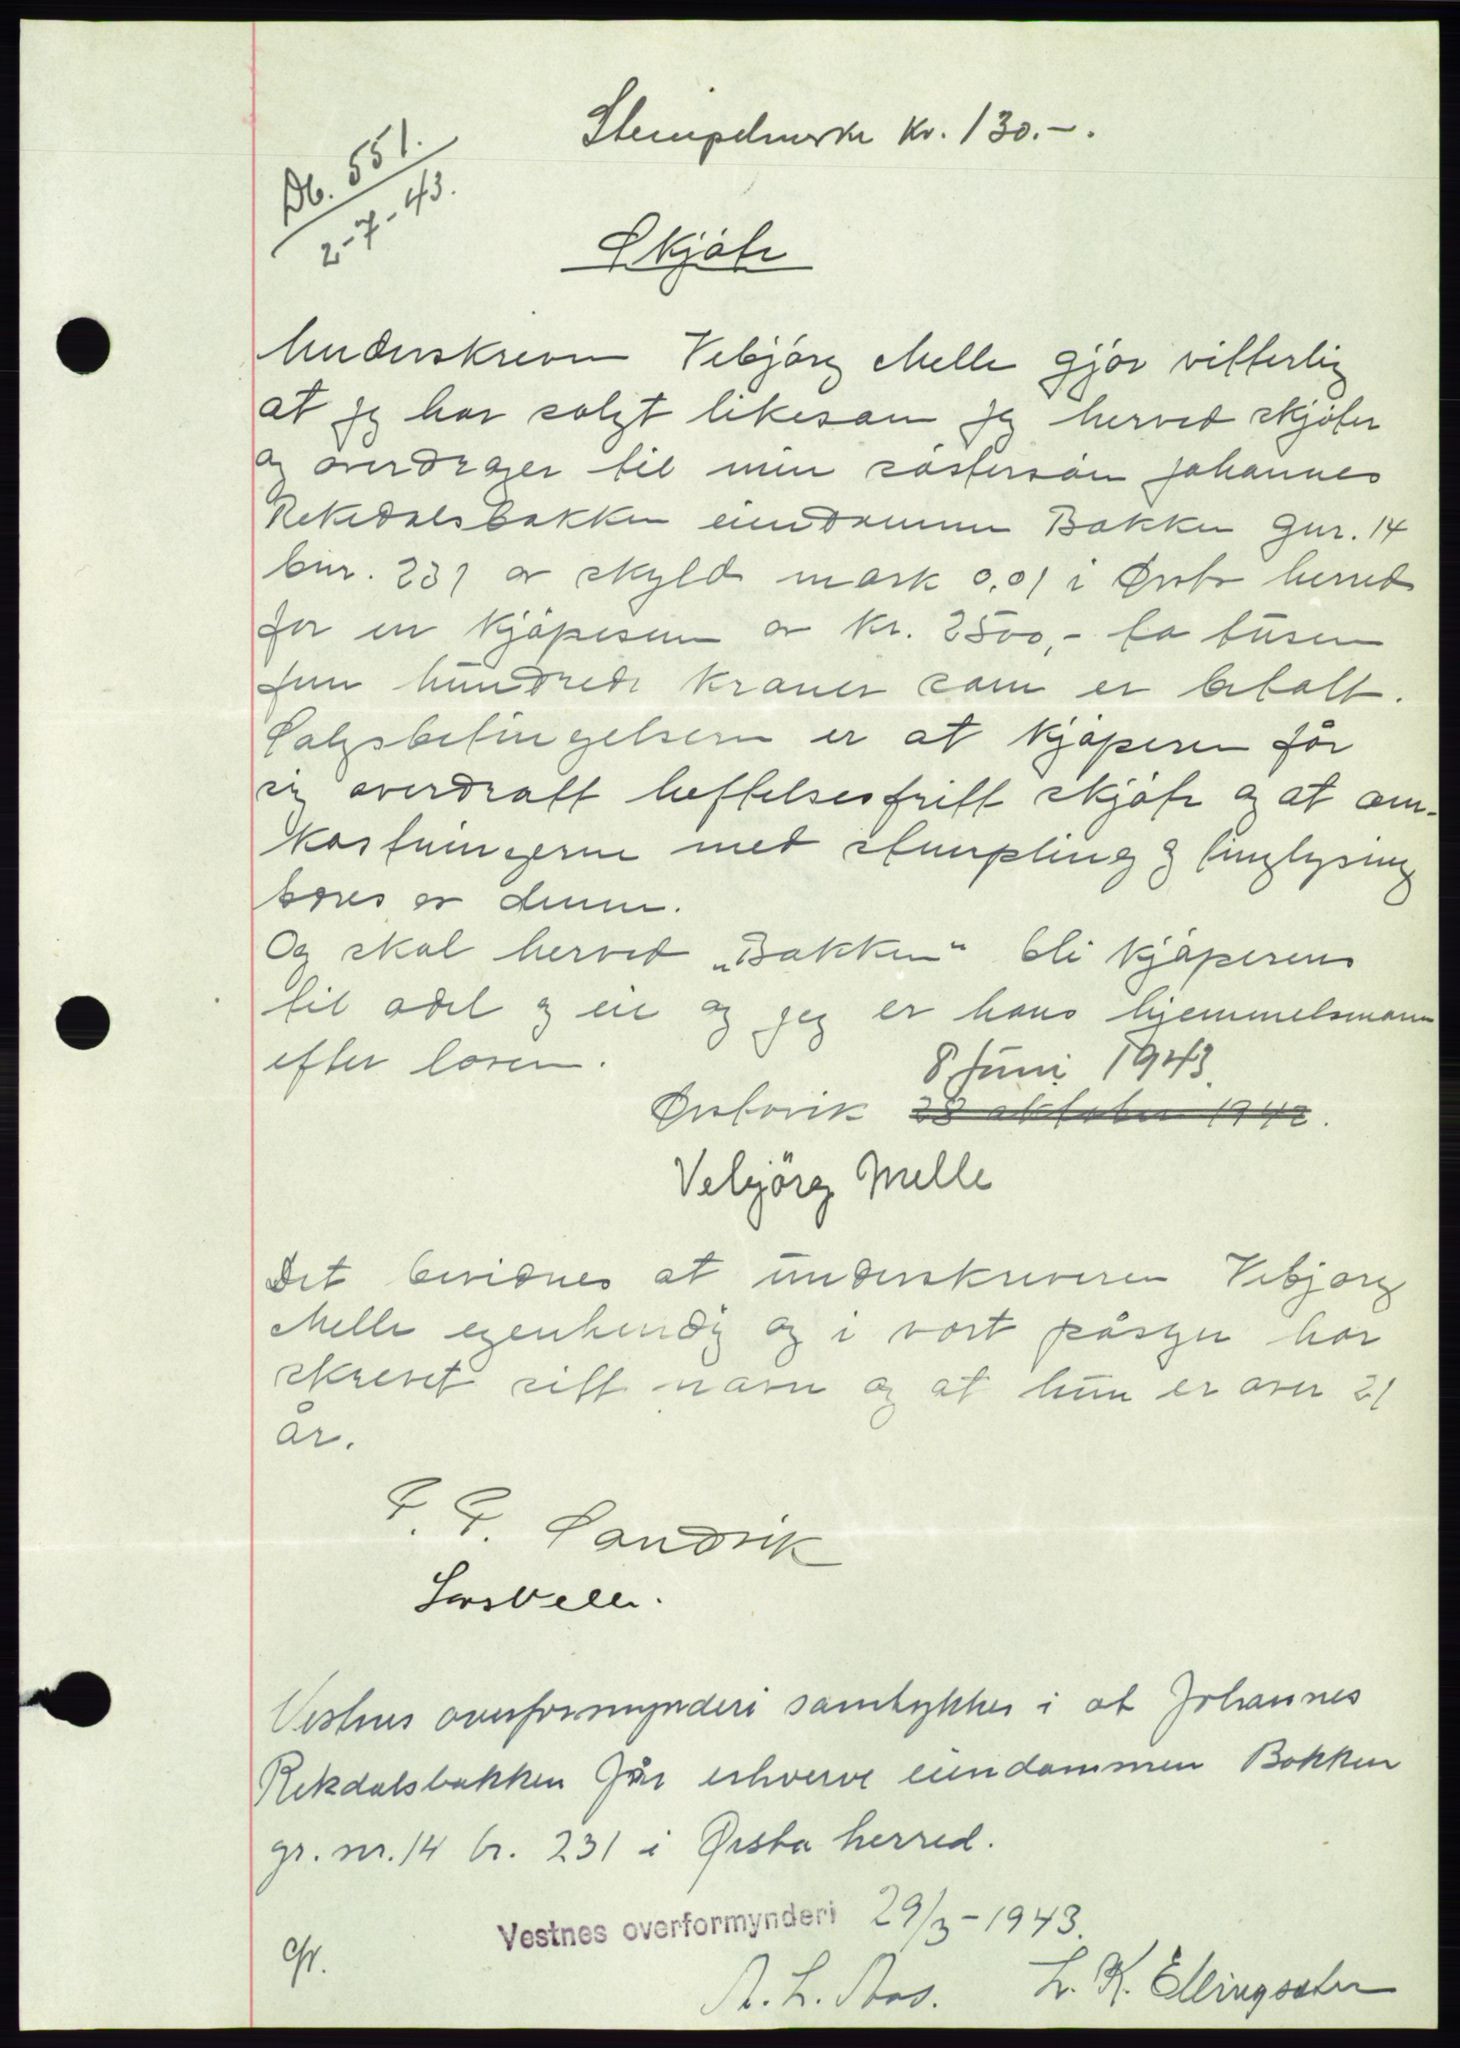 Stempelmerke kr. 130.-.
Db. 551.
2-7-43.
Skjøte
Underskreven Vebjørg Melle gjør vitterlig
at jeg har solgt likesom jeg herved skjøter
og overdrager til min søstersøn Johannes
Rekdalsbakken eiendommen Bakken gnr. 14
bnr. 231 av skyld mark 0,01 i Ørsta herred
for en kjøpesum av kr. 2500,- to tusen
fem hundrede kroner som er betalt.
Salgsbetingelsen er at kjøperen får
sig overdratt heftelsesfritt skjøte og at om-
kostningerne med stempling og tinglysing
bæres av denne.
Og skal herved „Bakken“ bli kjøperens
til odel og eie og jeg er hans hjemmelsmann
efter loven.
8 Juni 1943.
Ørstavik 28 oktober 1942.
Vebjörg Melle
Det bevidnes at underskriveren Vebjørg
Melle egenhendig og i vort påsyn har
skrevet sitt navn og at hun er over 21
år.
P. P. Sandvik
Lars Velle.
Vestnes overformynderi samtykker i at Johannes
Rekdalsbakken får erhverve eiendommen Bakken
gr. nr. 14 br. 231 i Ørsta herred.
Vestnes overformynderi 29/3-1943.
A. L. Aas. L. K. Ellingsæter